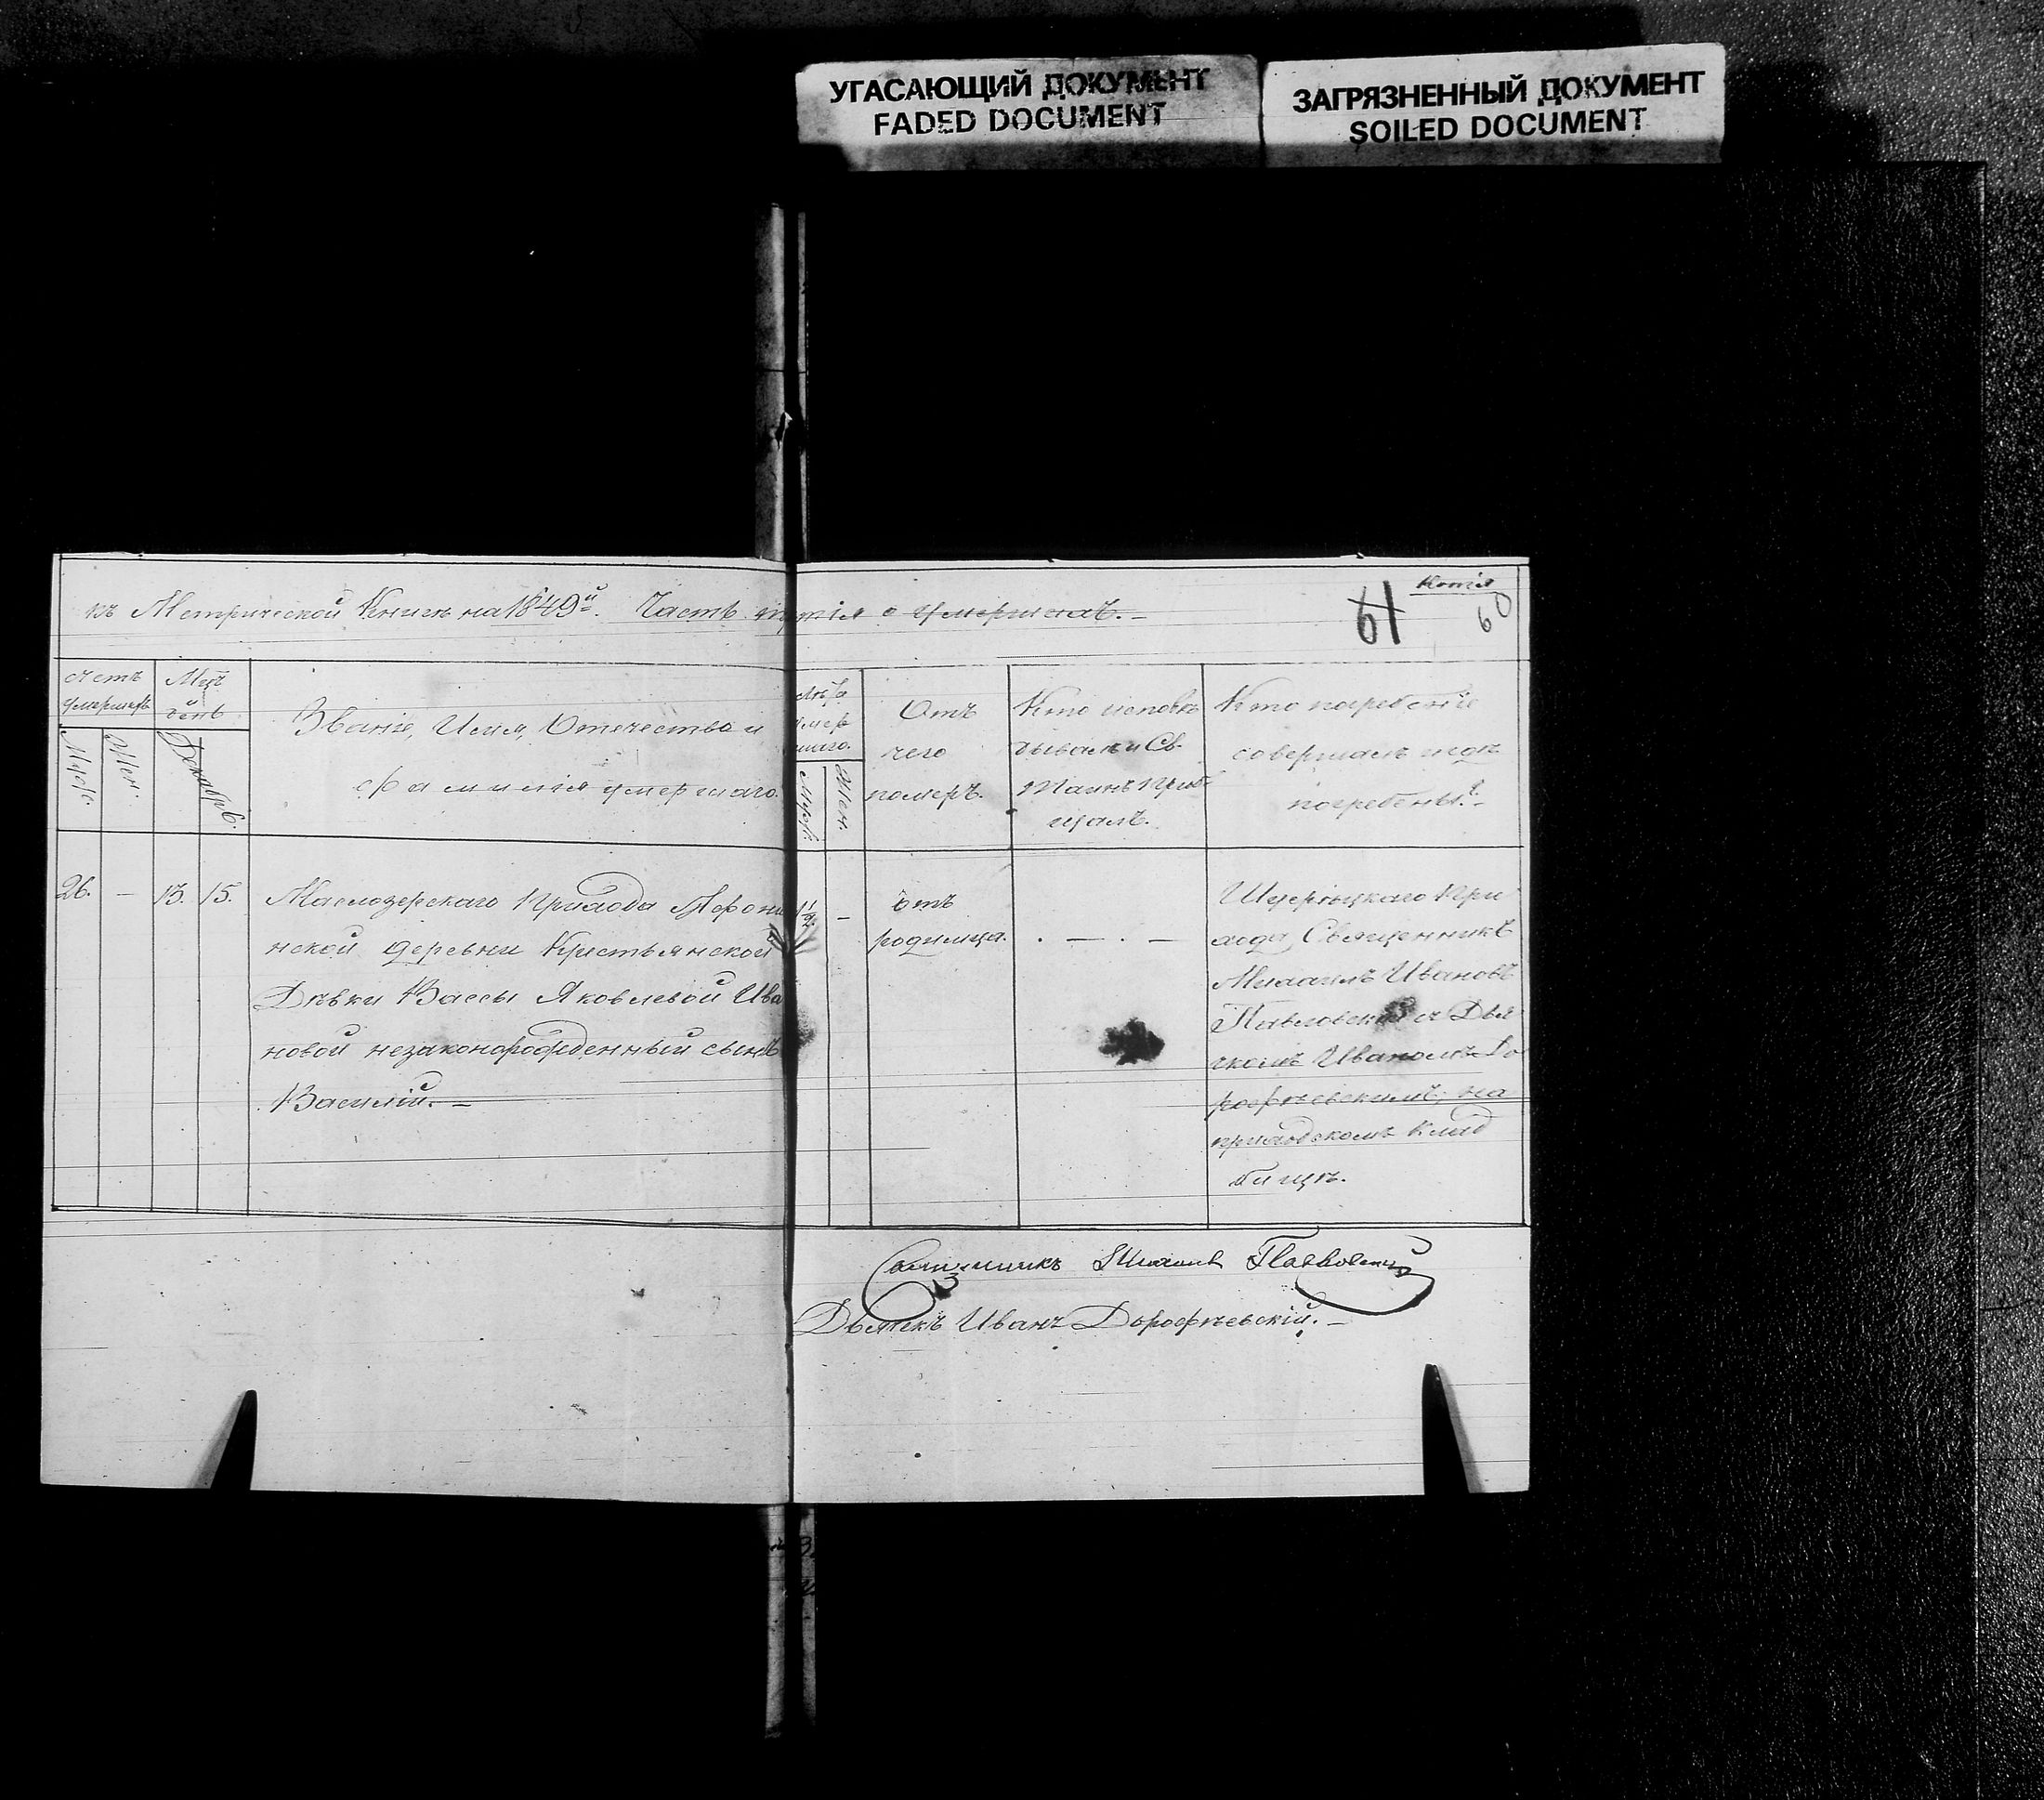 УГАСАЮЩИЙ ДОКУМЕНТ
FADED DOCUMENT
ЗАГРЯЗНЕННЫЙ ДОКУМЕНТ
SOILED DOCUMENT
Копія
61
60
Метрической Книгѣ на 1849й. Часть третія о умершихъ.
Счетъ умершихъ
Муж.
Жен.
Мцъ и день
Декабрь.
Званіе, Имя, Отечество и
фамилія умершаго.
Лѣта
умер
шаго.
Муж.
Жен.
Отъ
чего
померъ.
Кто исповѣ
дывалъ и Св.
Таинъ приоб
щалъ.
Кто погребеніе
совершалъ и гдѣ
погребены.
26. – 13. 15.
Маслозерскаго Прихода
нской деревни Крестьянской
Дѣвки Вассы Яковлевой Ива
новой незаконорожденный сынъ
Василій.
1½ –
отъ
родимца.
Прихода, Священникъ
Михаилъ Ивановъ
Павловскій съ Дья
чкомъ Иваномъ До
рофѣевскимъ, на
приходскомъ клад
бищѣ.
Священникъ Михаилъ Павловскій
Дьячекъ Иванъ Дорофѣевскій.